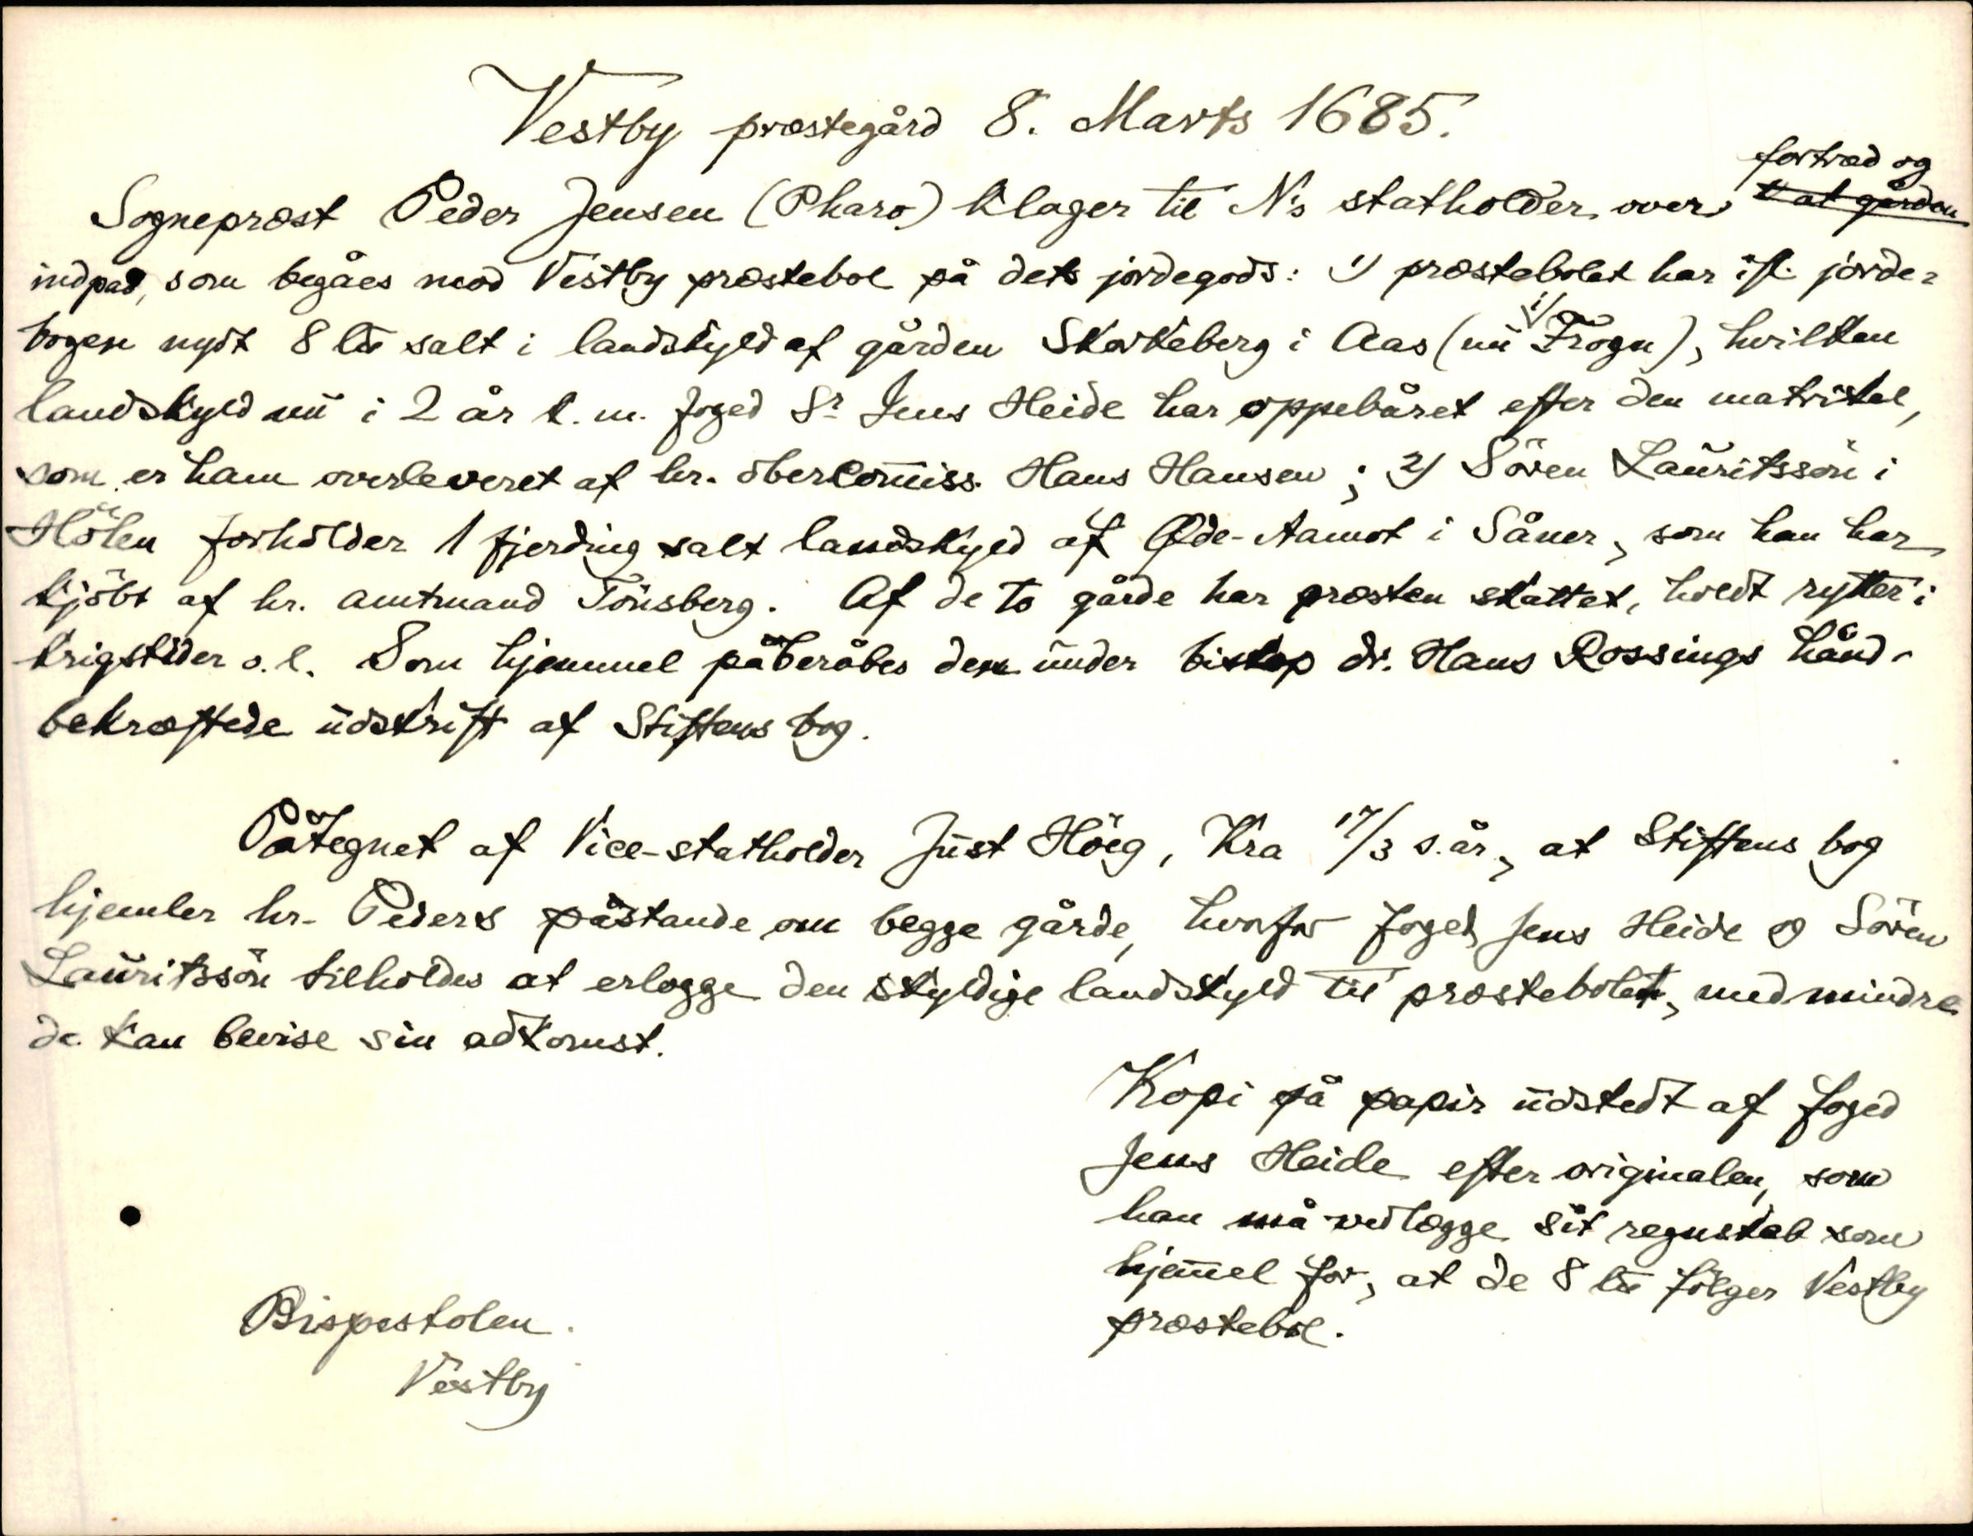 Vestby præstegård 8. Marts 1685.
fortræd og
Sognepræst Peder Jensen (Pharo) klager til N's statholder over
indpas, som begåes mod Vestby præstebol på dets jordegods: 1) præstebolet har ifl. jorde-
bogen nydt 8 lū salt i landskyld af gården Skorkeberg i Aas (nu i Frogn), hvilken
landskyld nu i 2 år k. m. foged Sr Jens Heide har oppebåret efter den matrikel,
som er ham overleveret af hr. obercom̄iss. Hans Hansen; 2) Sören Lauritssön i
Hölen forholder 1 fjerding salt landskyld af Øde-Aamot i Såner, som han har
kjöbt af hr. amtmand Tönsberg. Af de to gårde har præsten skattet, holdt rytter i
krigstider o. l. Som hjemmel påberåbes den under biskop dr. Hans Rossings hånd
bekræftede udskrift af Stiftens bog.
Påtegnet af Vice-statholder Just Höeg, Kra 17/3 s. år, at Stiftens bog
hjemler hr. Peders påstande om begge gårde, hvorfor foged Jens Heide og Sören
Lauritssön tilholdes at erlægge den skyldige landskyld til præstebolet, med mindre
de kan bevise sin adkomst.
Kopi på papir udstedt af foged
Jens Heide efter originalen, som
han må vedlægge sit regnskab som
hjem̄el for, at de 8 lū fölger Vestby
præstebol.
Bispestolen.
Vestby